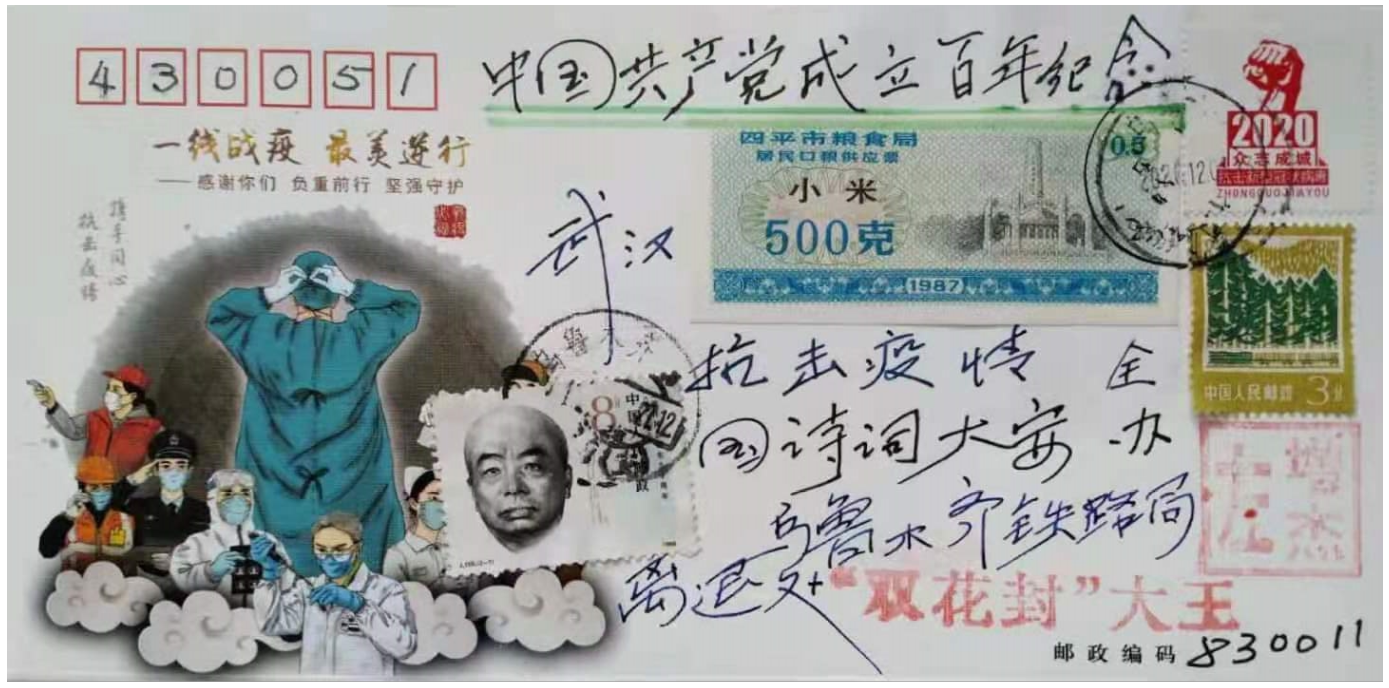 430051
中国共产党成立百年纪念
2020
众志成城
抗击新型冠状病毒
ZHONGGUOJIAYOU
一线战疫 最美逆行
——感谢你们 负重前行 坚强守护
携手同心
抗击疫情
四平市粮食局
居民口粮供应票
0.5
小米
500克
1987
武汉
中国人民邮政 3分
8分
中国
邮政
抗击疫情 全
国诗词大
办
乌鲁木齐铁路局
离退
“双花封”大王
邮政编码 830011